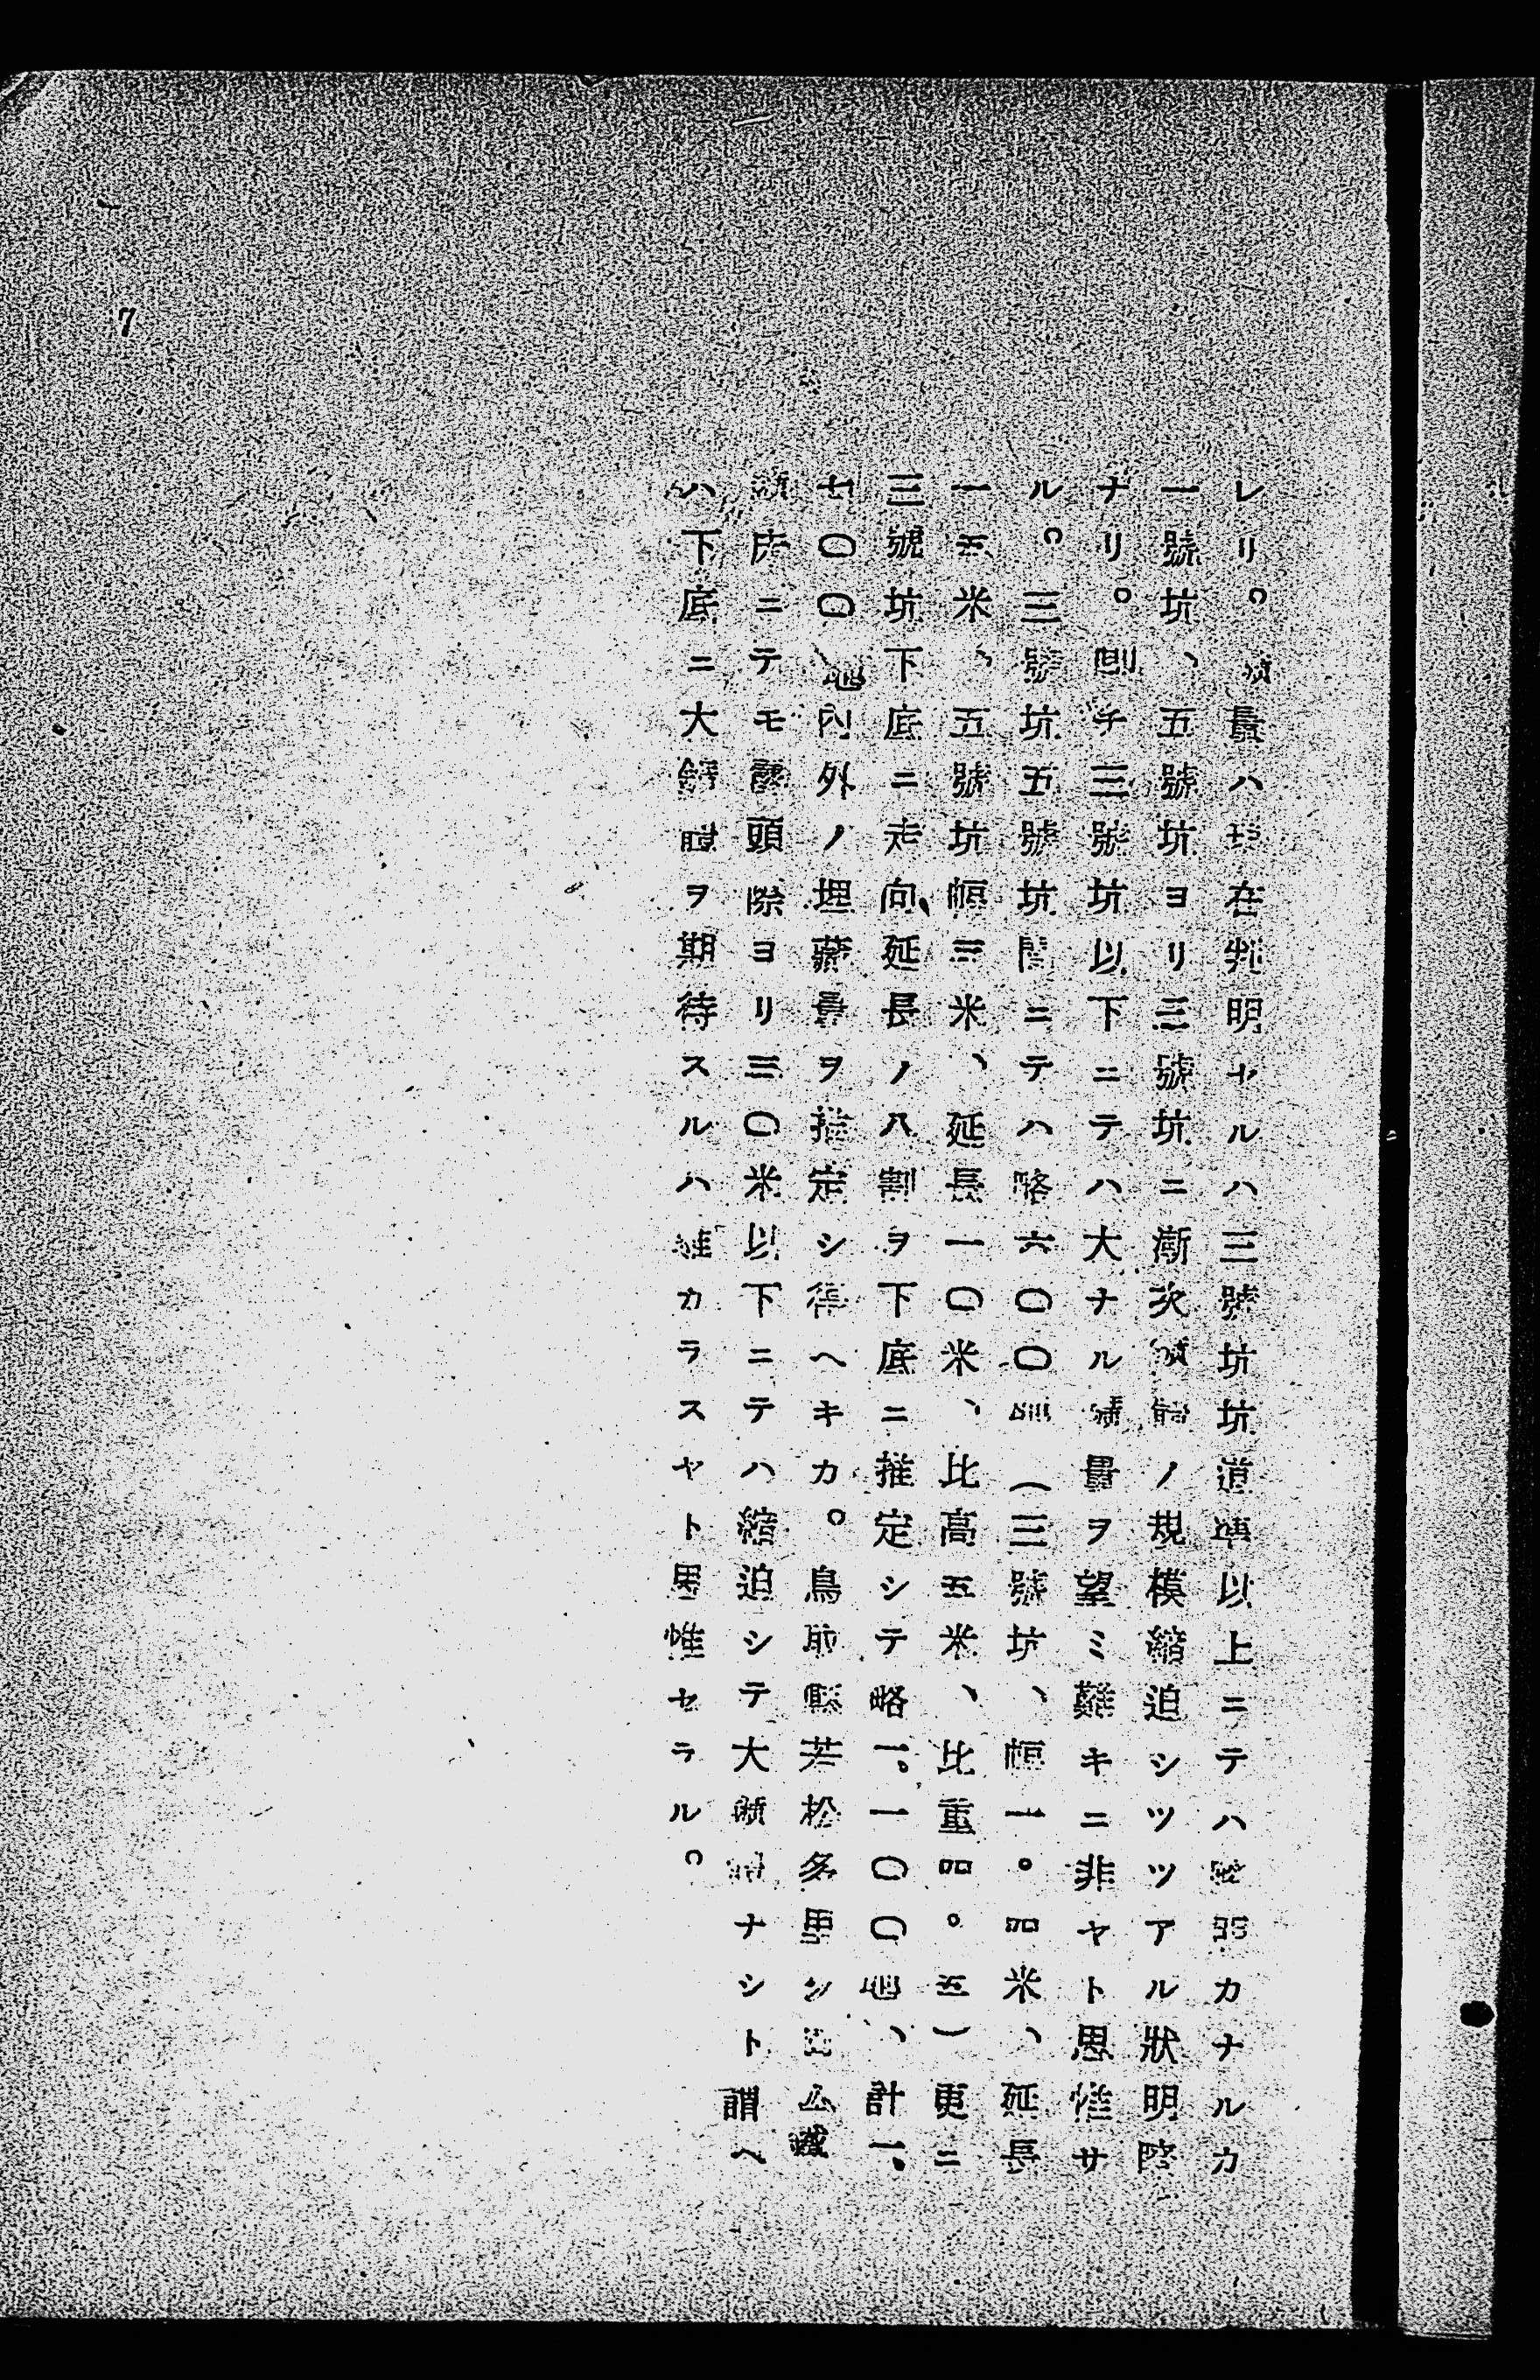 レリ。鑛量ハ現在判明セルハ三號坑坑道準以上ニテハ カナルカ
一號坑、五號坑ヨリ三號坑ニ漸次鑛體ノ規模縮迫シツツアル狀明瞭
ナリ。則チ三號坑以下ニテハ大ナル鑛量ヲ望ミ難キニ非ヤト思惟サ
ル。三號坑五號坑間ニテハ略六〇〇瓲（三號坑、幅一。四米、延長
一五米、五號坑幅三米、延長一〇米、比高五米、比重四。五）更ニ
三號坑下底ニ走向延長ノ八割ヲ下底ニ推定シテ略一、一〇〇瓲、計一、
七〇〇瓲內外ノ埋藏量ヲ推定シ得ヘキカ。鳥取縣若松多里クロム鐵
鑛床ニテモ露頭際ヨリ三〇米以下ニテハ縮迫シテ大鑛體ナシト謂ヘ
ハ下底ニ大鑛體ヲ期待スルハ難カラスヤト思惟セラル。
7